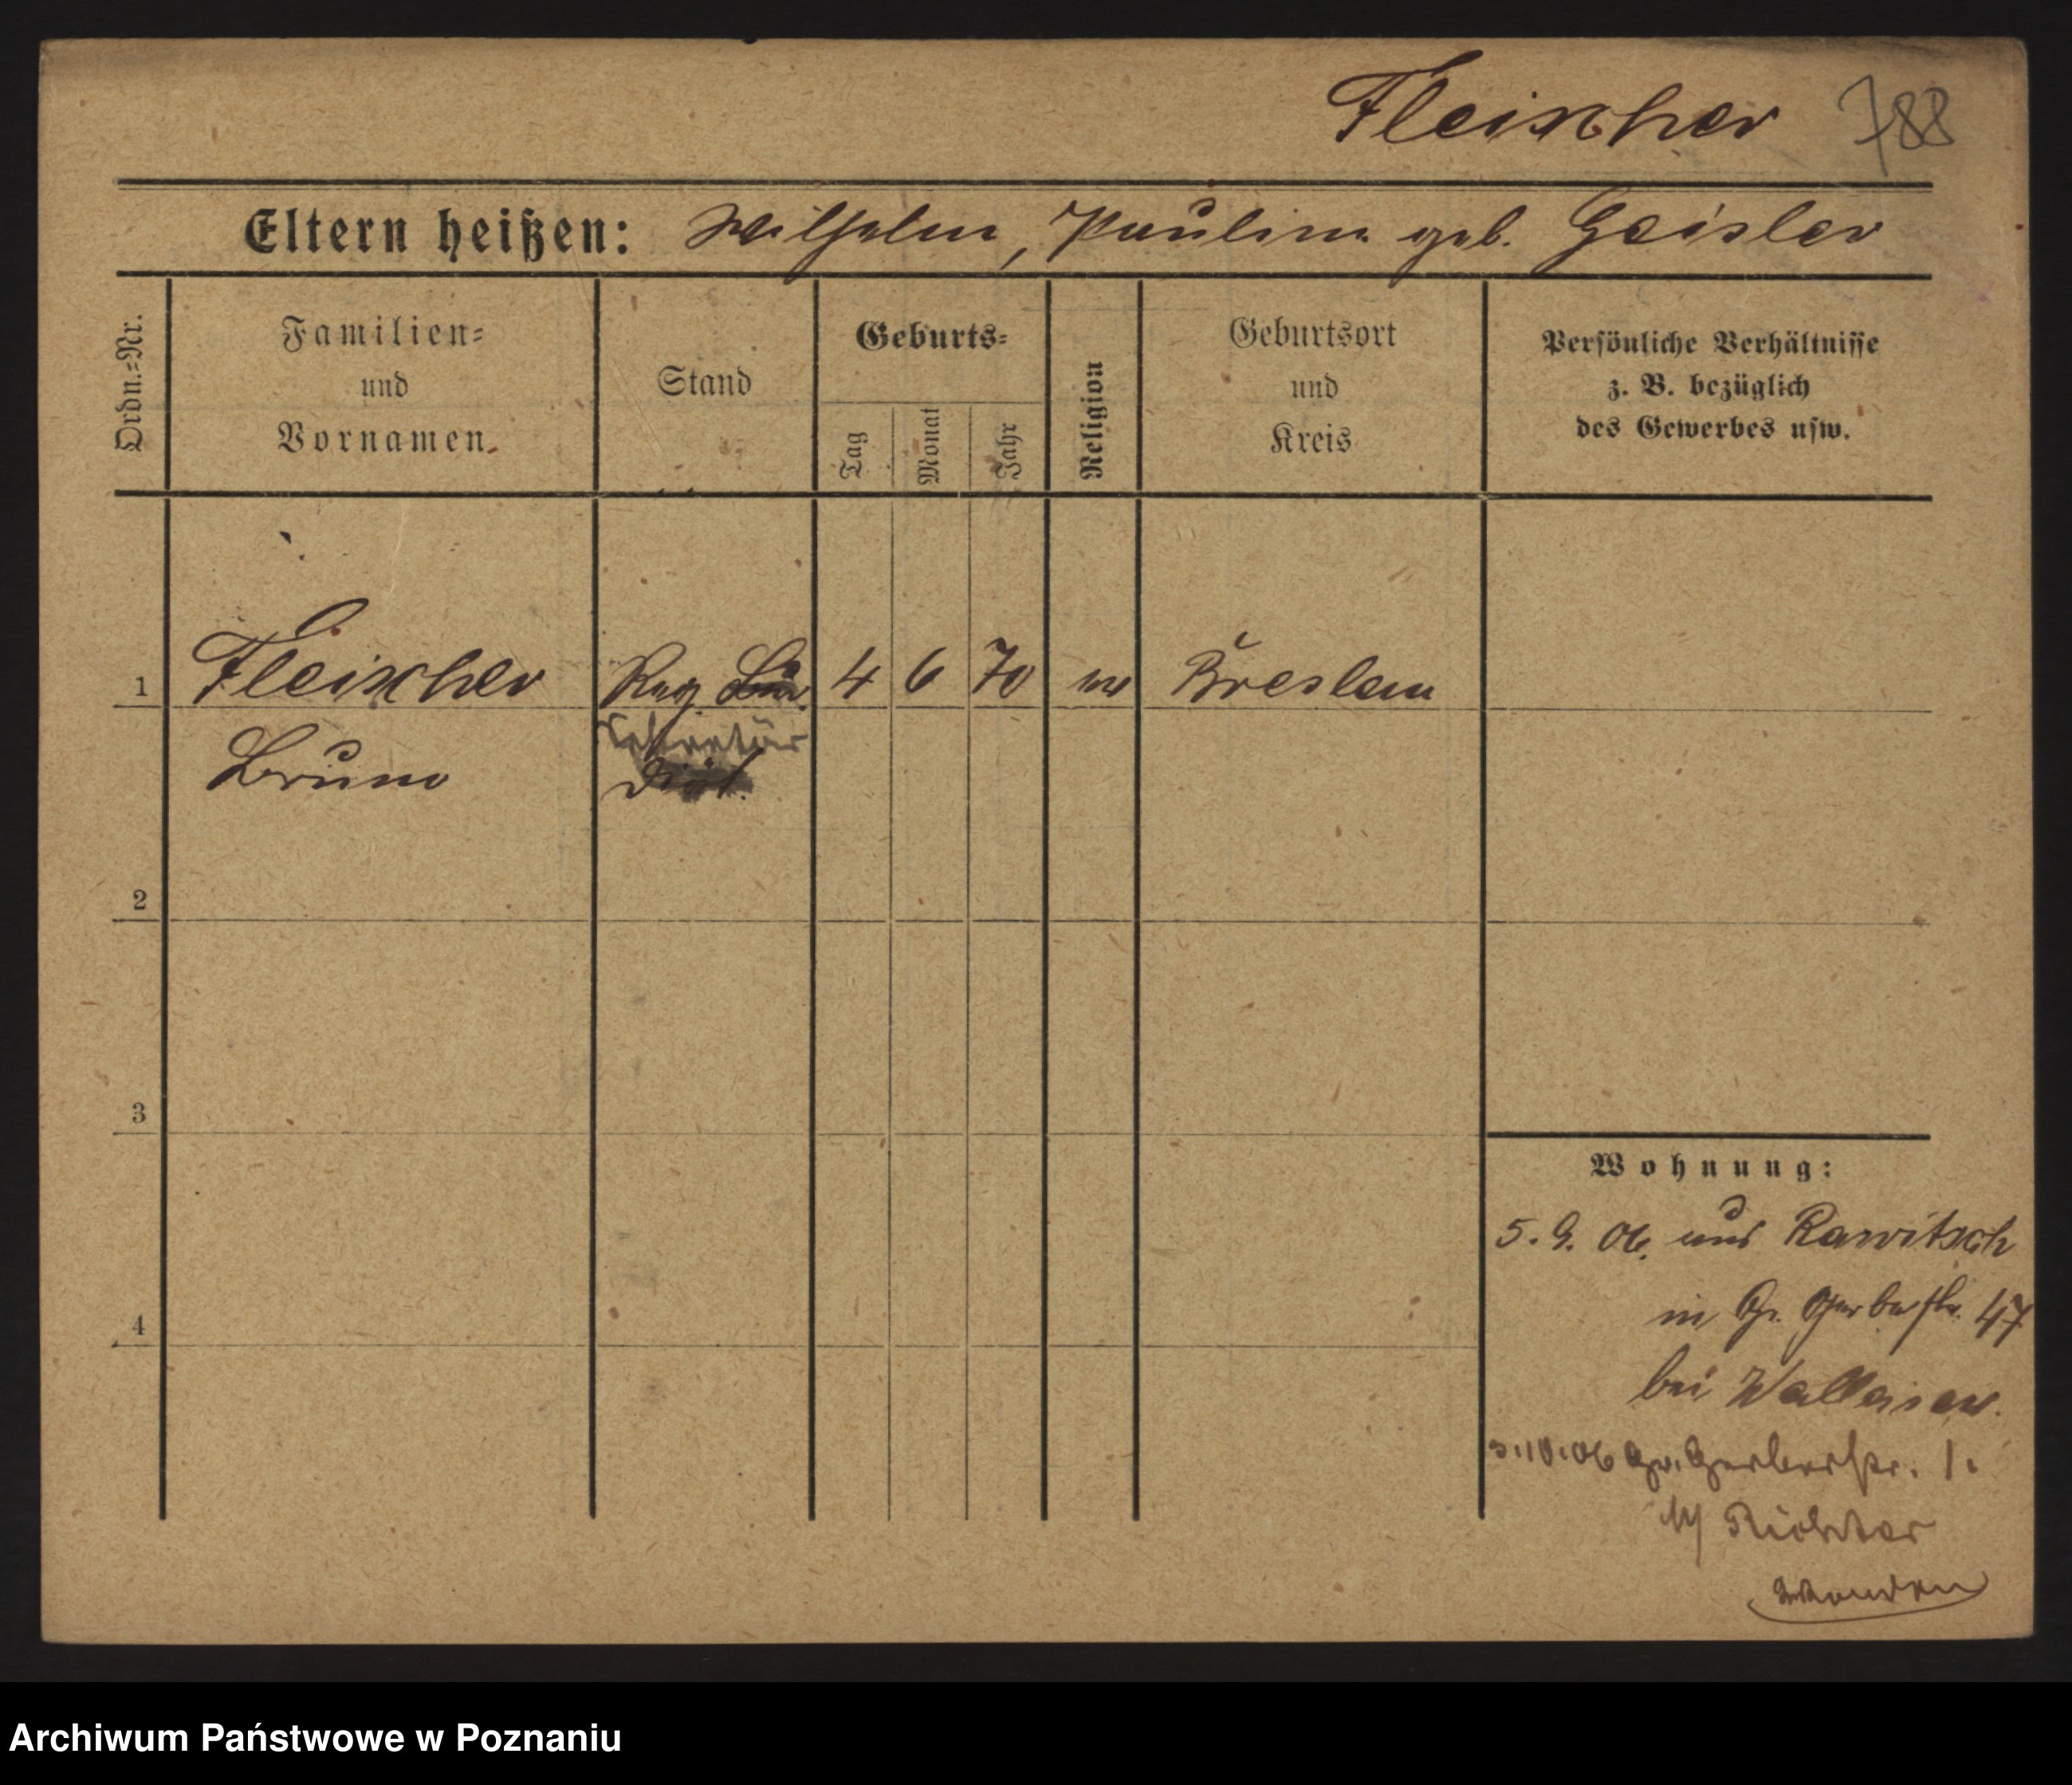 Fleischer 788
Eltern heißen: Wilhelm, Pauline geb. Geisler
Ordn.=Nr.
Familien=
und
Vornamen.
Stand
Geburts=
Tag
Monat
Jahr
Religion
Geburtsort
und
Kreis
Persönliche Verhältnisse
z. B. bezüglich
des Gewerbes usw.
1 Fleischer Reg. 4 6 70 Breslau
Sekretär
Bruno Diät.
2
3
4
Wohnung:
5. 9. 06. aus Rawitsch
in Gr. Gerberstr. 47
bei
3.10.06 Gr. Gerberstr. 1.
Richter
Archiwum Państwowe w Poznaniu